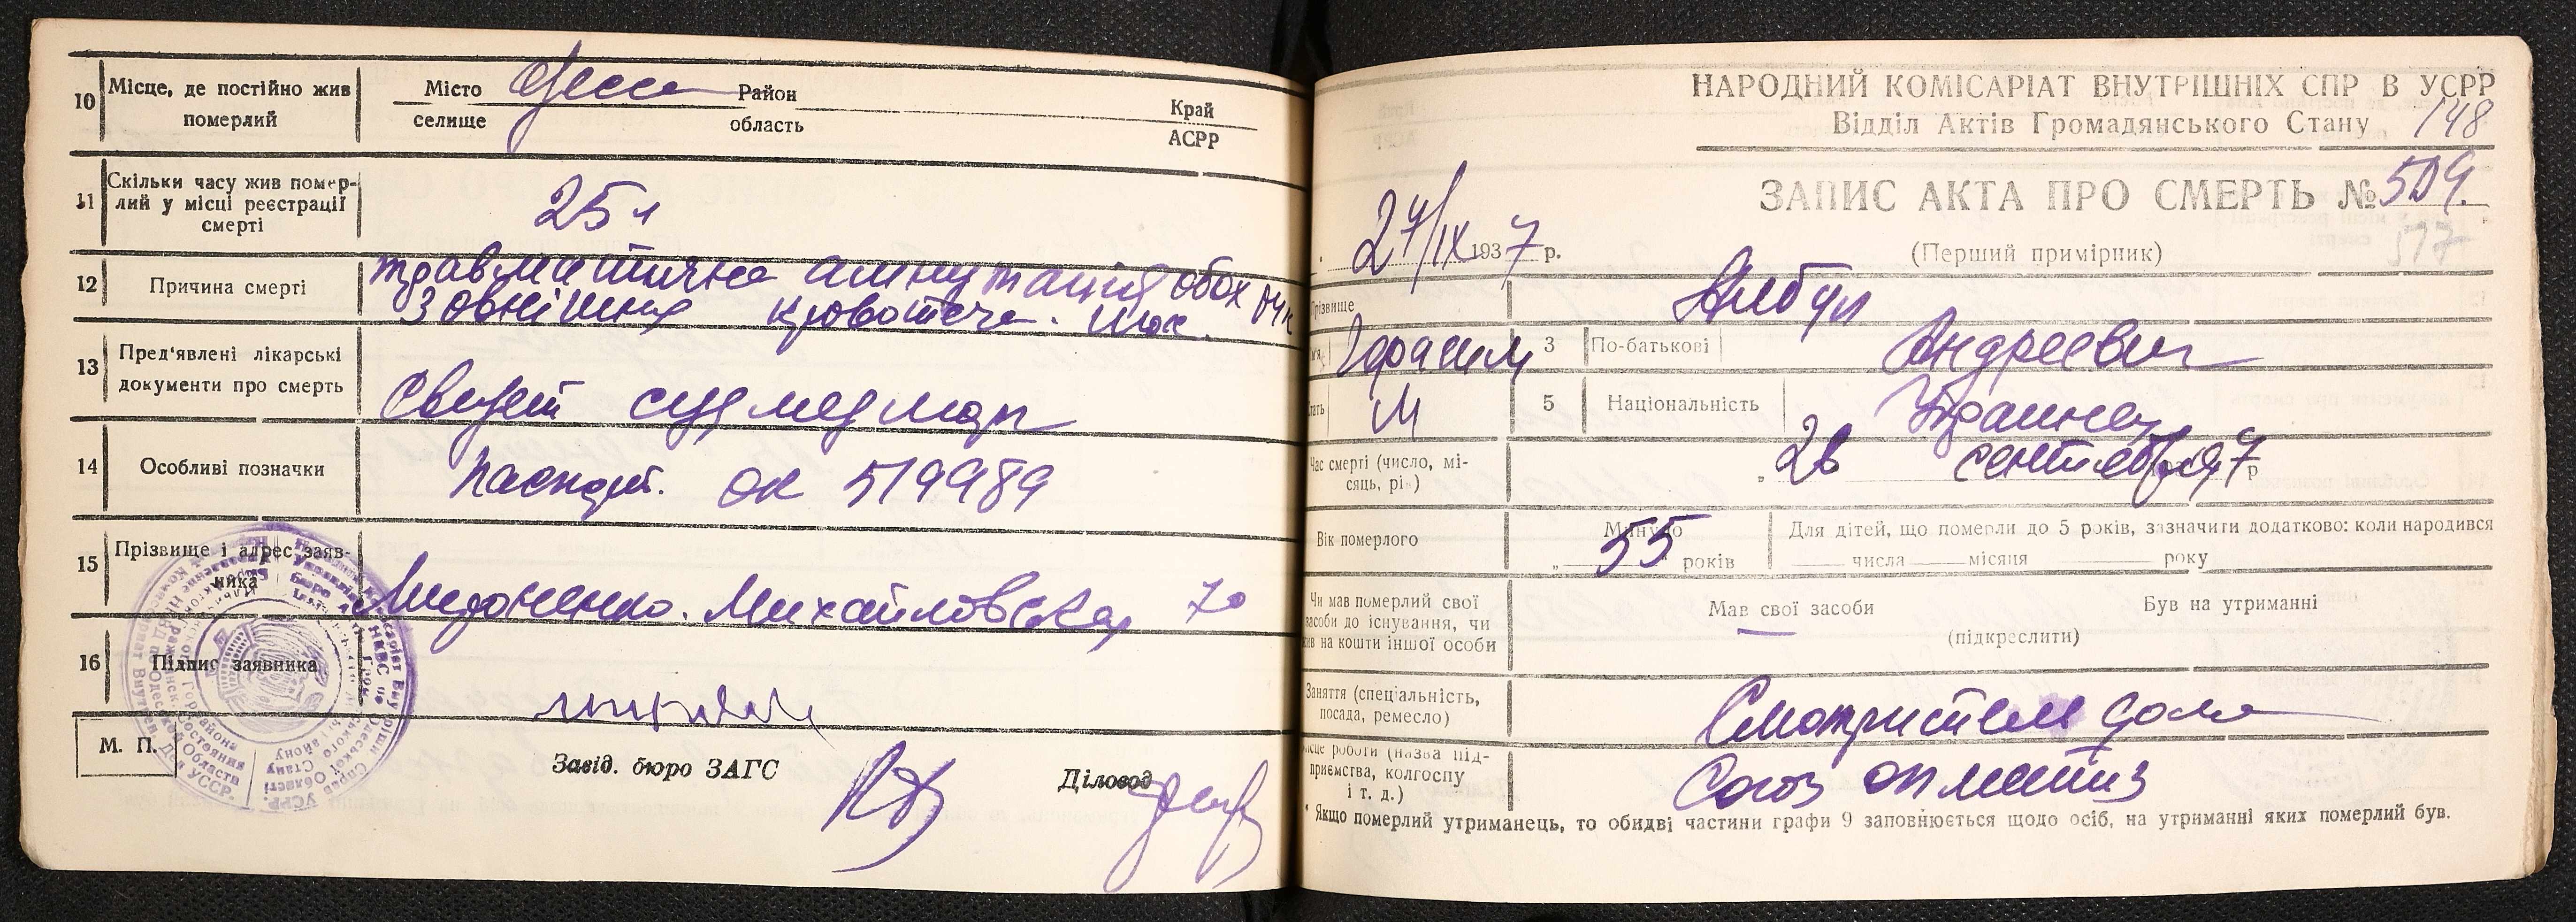 10 Місце, де постійно жив померлий
Місто Одесса Район Край
селище область АСРР
11 Скільки часу жив помер-
лий у місці реєстрації
смерті
25 л
12 Причина смерті
травматична ампутація обох
Зовнішня кровотеча. Шок.
13 Пред'явлені лікарські
документи про смерть
Свидет суд мед
14 Особливі позначки
Паспорт. ОК 519989
15 Прізвище і адрес заяв-
ника
Михайловская 70
16 Підпис заявника
М. П.
Завід. бюро ЗАГС
Діловод
НАРОДНИЙ КОМІСАРІАТ ВНУТРІШНІХ СПР В УСРР
Відділ Актів Громадянського Стану 148
ЗАПИС АКТА ПРО СМЕРТЬ № 509.
517
27/IX 1937 р.
(Перший примірник)
різвище Албул
Герасим 3 По-батькові Андреевич
М 5 Національність Украинец
Час смерті (число, мі-
сяць, рік)
26 сентября 37 р
Вік померлого
Минуло
55 років
Для дітей, що померли до 5 років, зазначити додатково: коли народився
числа місяця року
Чи мав померлий свої
засоби до існування, чи
жив на кошти іншої особи
Мав свої засоби Був на утриманні
(підкреслити)
Заняття (спеціальність,
посада, ремесло)
Смотритель дома
місце роботи (назва під-
приємства, колгоспу
і т. д.)
Союз
* Якщо померлий утриманець, то обидві частини графи 9 заповнюється щодо осіб, на утриманні яких померлий був.